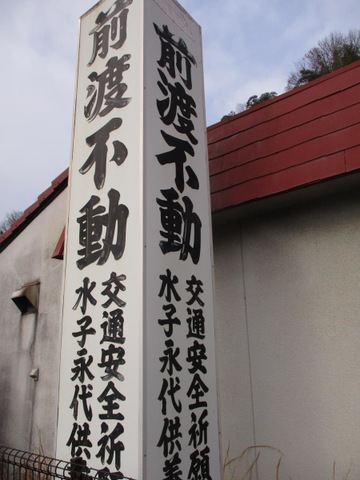 前渡不動
交通安全祈願
水子永代供養
前渡不動
交通安全祈願
水子永代供